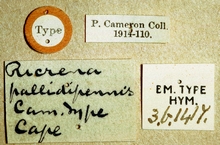 Type
P. Cameron Coll.
1914-110.
Ricrena
pallidipennis
Cam. Type
Cape
B.M. TYPE
HYM.
3.b.1417.